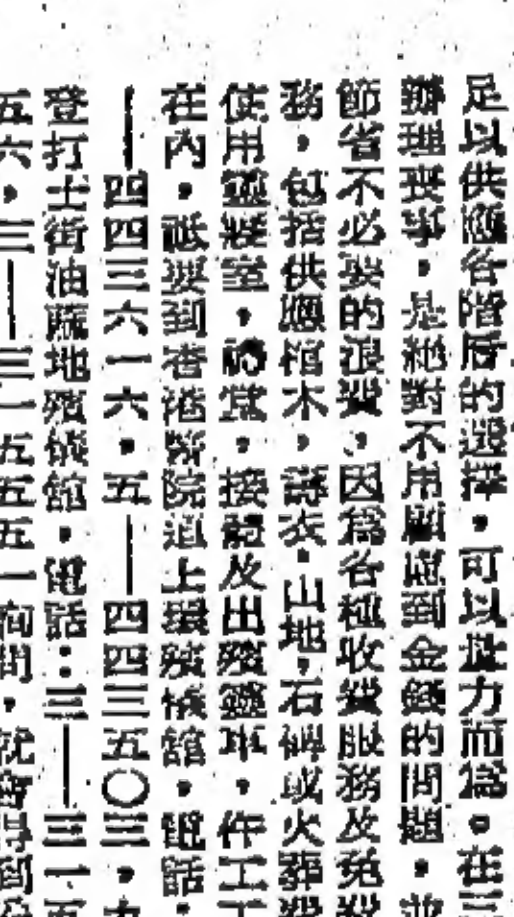 足以供應各階層的選擇,可以量力而為。在三
辦理喪事,是絕對不用顧慮到金錢的問題,並
節省不必要的浪費,因為各種收費服務及免費
務,包括供應棺木,壽衣,山地,石碑或火葬費
使用靈寢室,禮堂,接體及出殯靈車,仵工工
在內,祇要到香港醫院道上環殯儀館,電話:
——四四三六一六,五——四四三五〇三,九
登打士街油蔴地殯儀館,電話:三——三一五
五六,三——三一五五五一詢問,就會得到